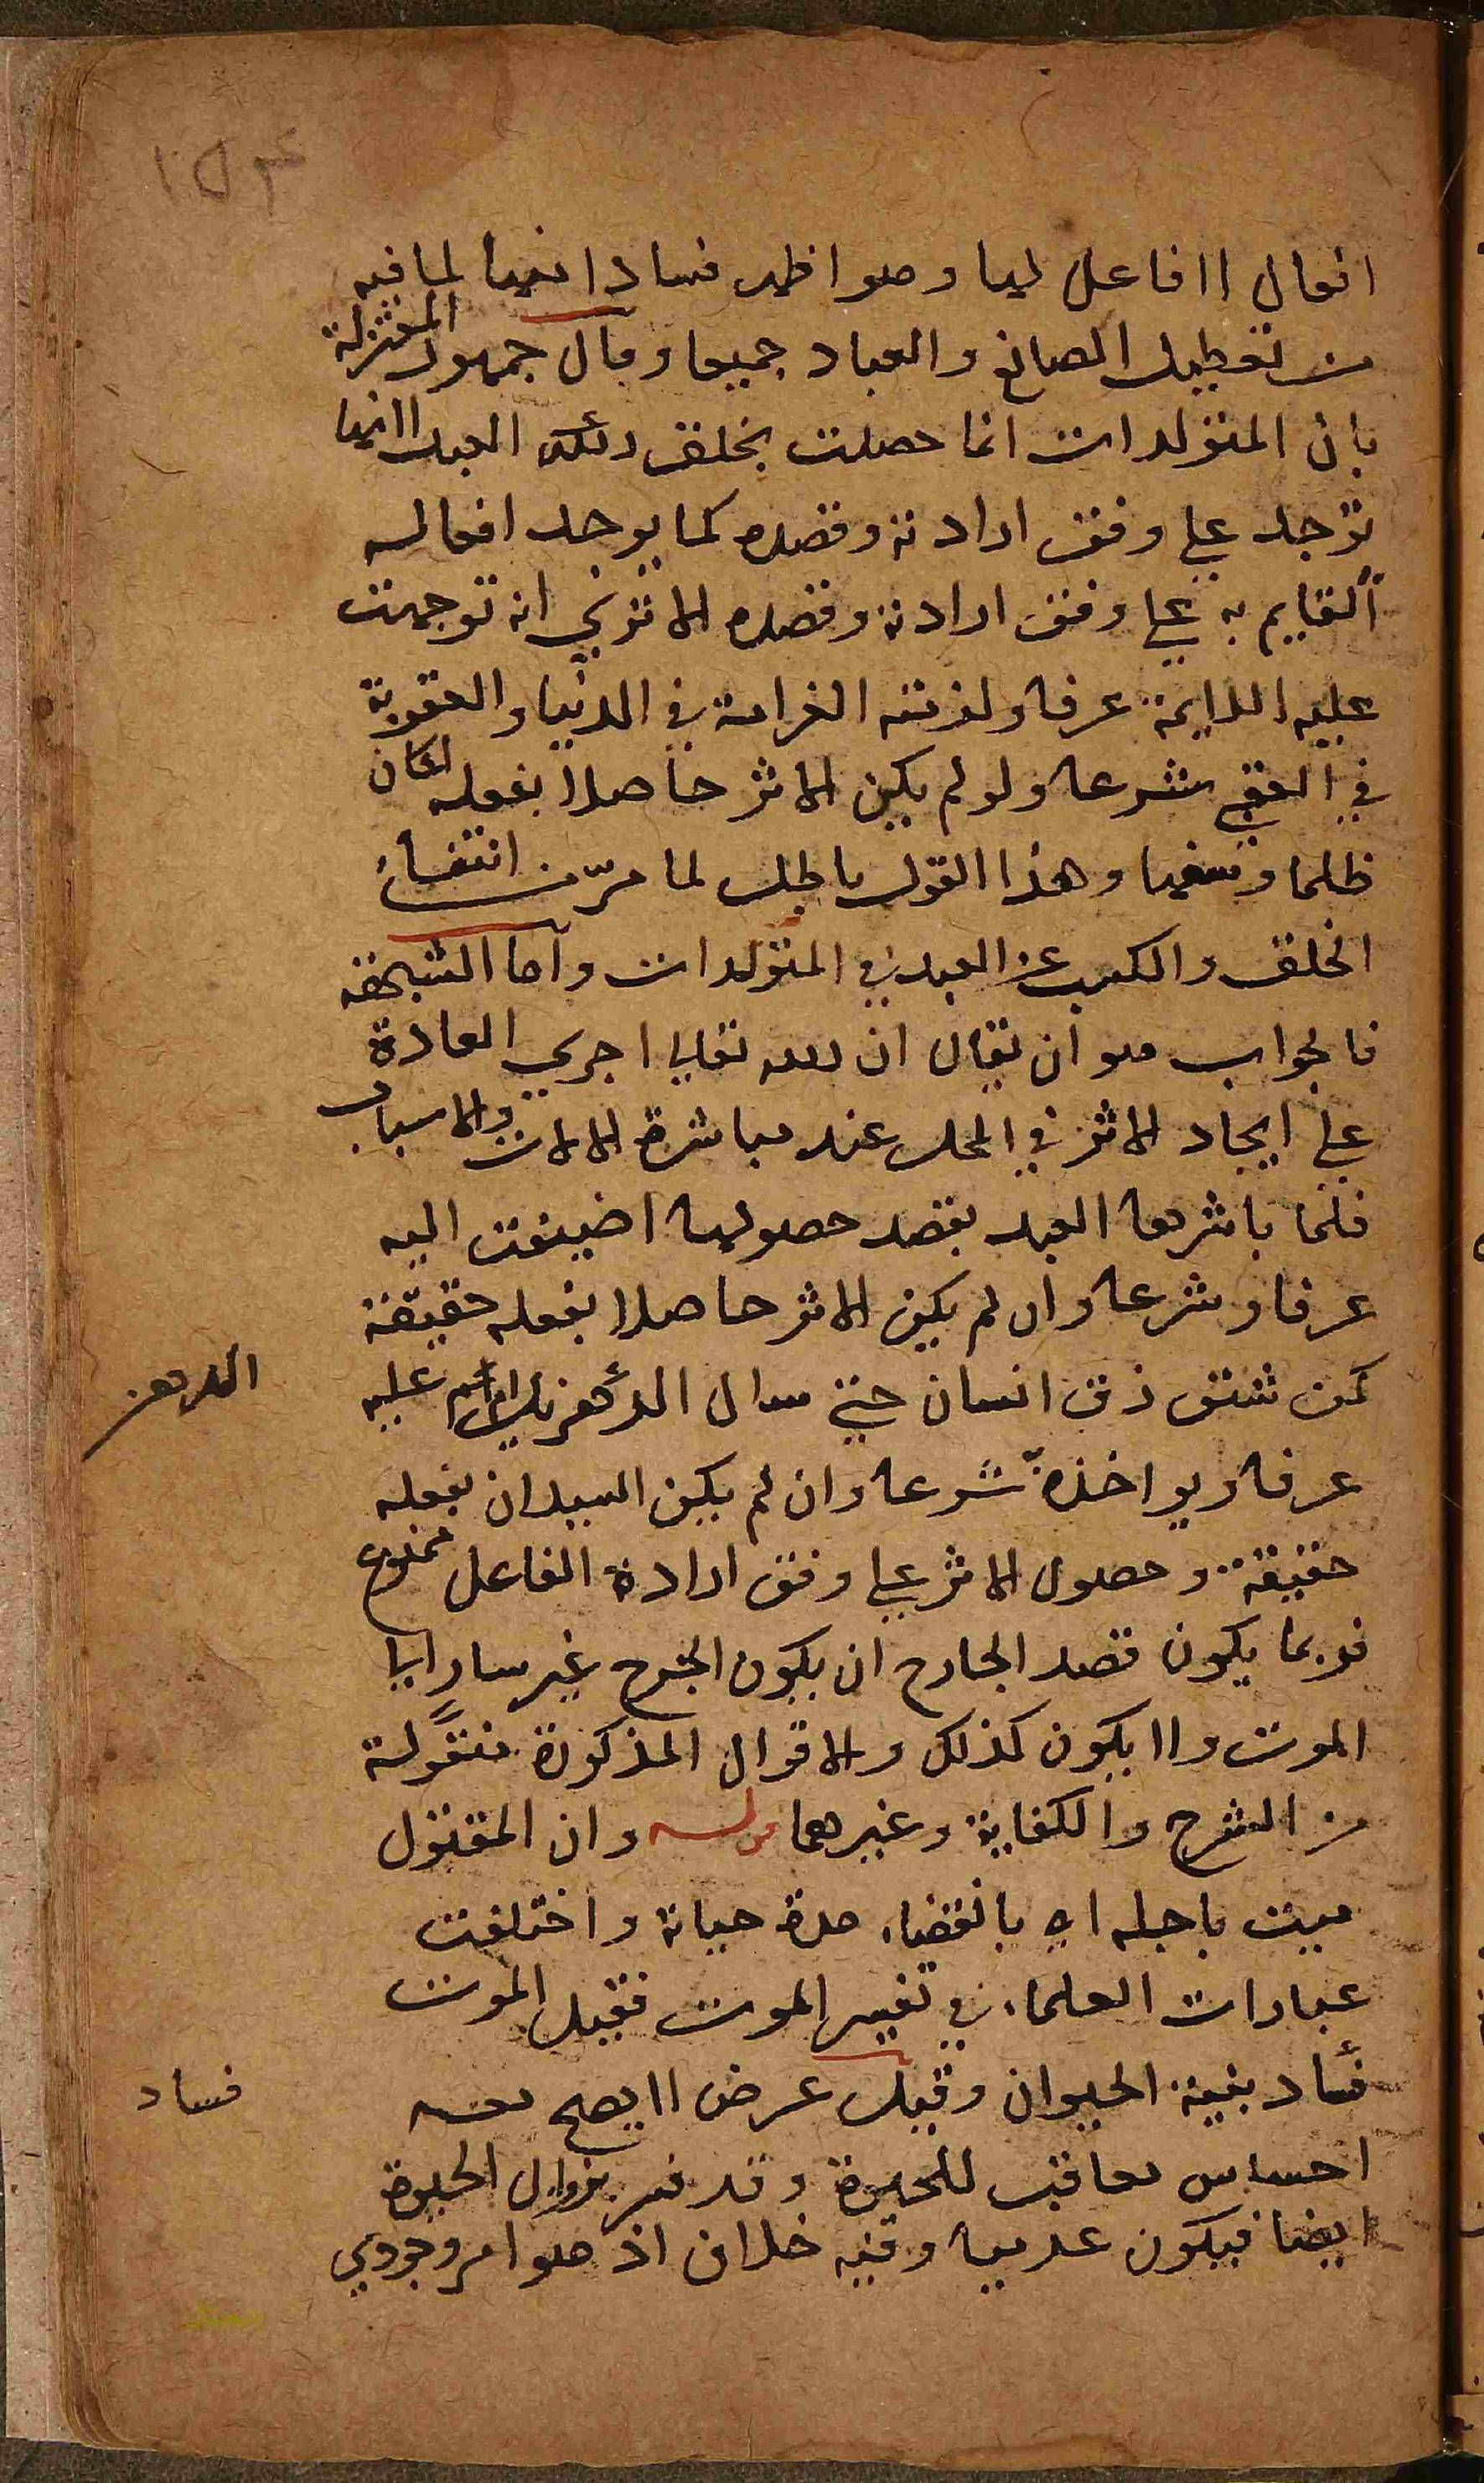 ١٥٣
افعال لا فاعل لها وهو اظهر فسادا ايضا لما فيه
من تعطيل الصانع والعباد جميعا وقال جمهور المعتزلة
بان المتولدات انما حصلت بخلق ذلك العبد لانها
توجد علي وفق ارادته وقصده كما يوجد افعاله
القايم به علي وفق ارادته وقصده الا تري انه توجهت
عليه اللايمة عرفا ولزمته الغرامة في الدنيا والعقوبة
في العقبي شرعا ولو لم يكن الاثر حاصلا بفعله لكان
ظلما وسفها وهذا القول باطل لما مر من انتفاء
الخلق والكسب عن العبد في المتولدات واما الشبهة
فالجواب هو ان يقال ان الله تعالي اجري العادة
علي ايجاد الاثر في المحل عند مباشرة الالات والاسباب
فلما باشرها العبد بقصد حصولها اضيفت اليه
عرفا وشرعا وان لم يكن الاثر حاصلا بفعله حقيقة
كمن شق زق انسان حتي سال الدهن يلام عليه
الدهن
عرفا ويواخذه شرعا وان لم يكن السيلان بفعله
حقيقة وحصول الاثر علي وفق ارادة الفاعل ممنوع
فربما يكون قصد الجارح ان يكون الجرح غير سار الي
الموت ولا يكون كذلك والاقوال المذكورة منقولة
من الشرح والكفاية وغيرهما قوله وان المقتول
ميت باجله اي بانقضاء مدة حياته واختلفت
عبارات العلماء في تفسير الموت فقيل الموت
فساد بنية الحيوان وقيل عرض لا يصح معه
فساد
احساس معاقب للحيوة وقد فسر بزوال الحيوة
ايضا فيكون عدميا وفيه خلاف اذ هو امر وجودي